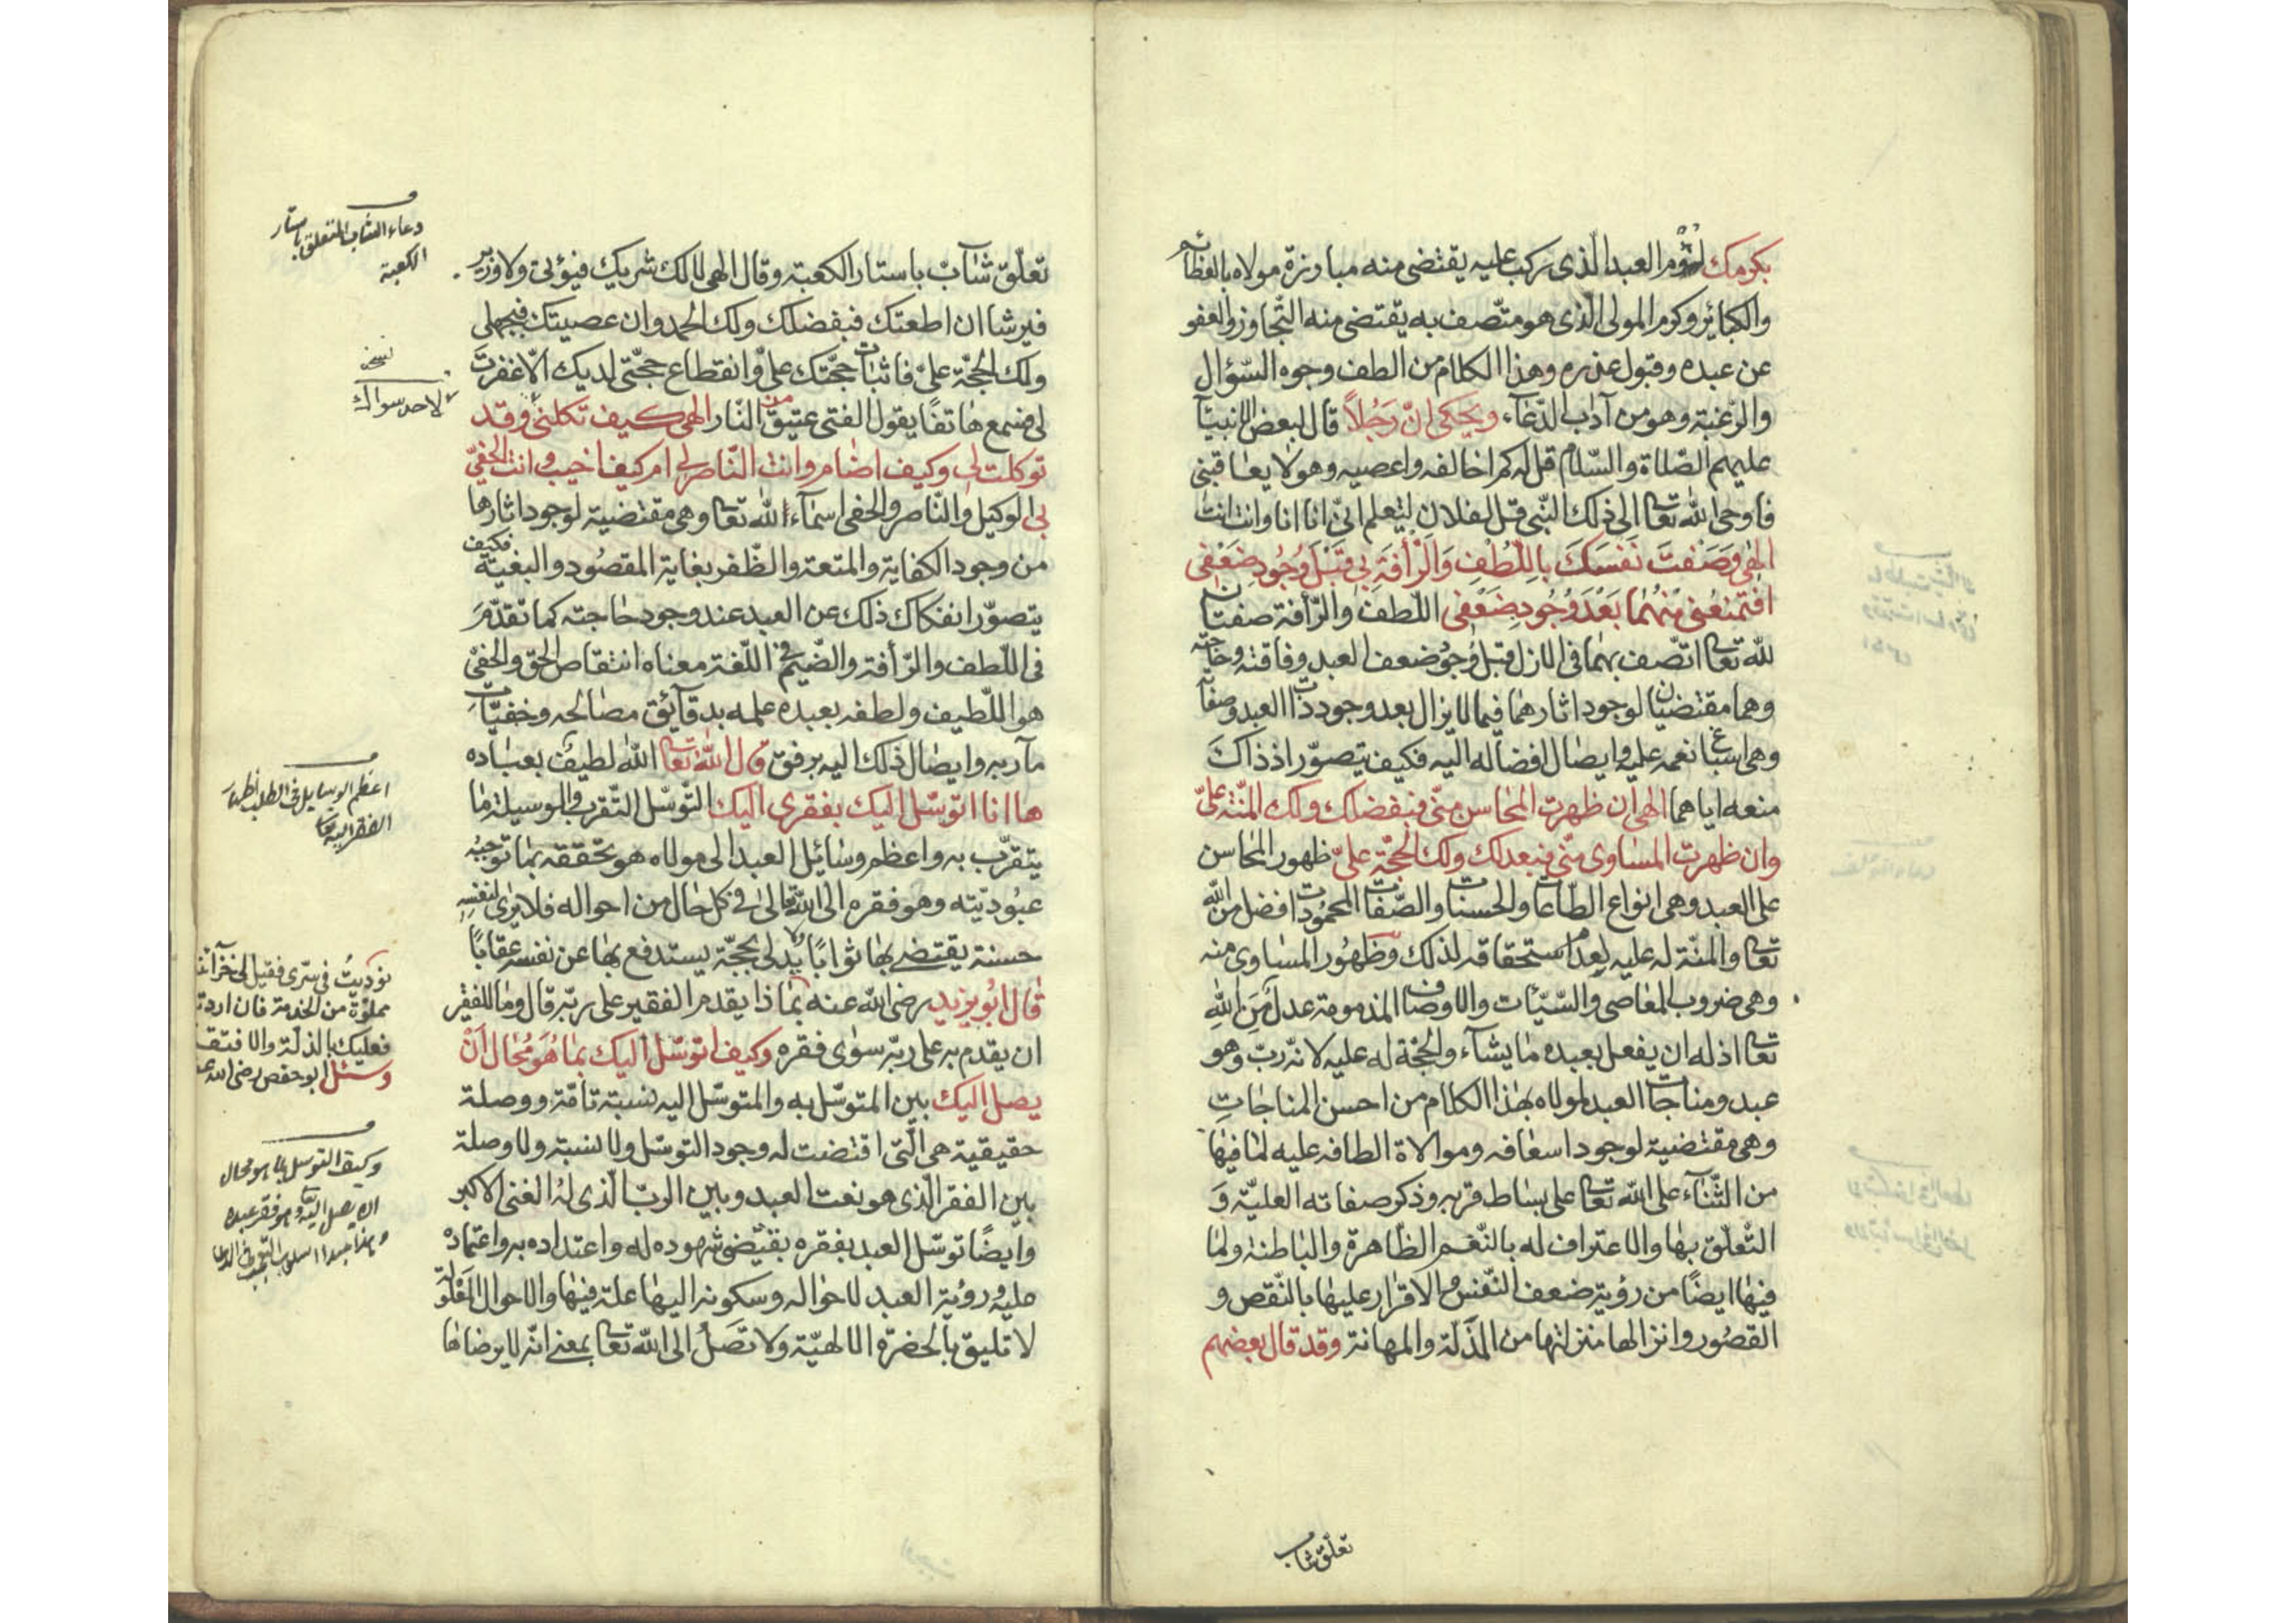 بكرمك لؤم العبد الذى ركب عليه يقتضى منه مبارزة مولاه بالعظائم
والكبائر وكرم المولى الذى هو متّصف به يقتضى منه التّجاوز والعفو
عن عبده وقبول عذره وهذا الكلام من الطف وجوه السّؤال
والرّغبة وهو من آداب الدّعاء ويحكى انّ رَجُلاً قال لبعض الانبيآ
عليهم الصّلاة والسّلام قل له كم اخالفه واعصيه وهو لا يعاقبنى
فاوحى الله تعا الى ذلك النّبى قل لفلان ليتعلم انّى انا انا وانت انت
الهى وَصَفتَ نَفسَكَ باللّطْفِ وَالرّأفَةِ بى قَبْلَ وُجُودِ ضَعْفِى
افتمنعُنى مِنْهُمَا بَعْدَ وُجُودِ ضَعْفِى اللّطف والرّأفة صفتان
لله تعا اتّصف بهما فى الازل قبل وجود ضعف العبد وفاقته وحاجته
وهما مقتضيان لوجود اثارهما فيما لا يزال بعد وجود ذات العبد وصفاته
وهى اسباغ نعمه عليه وايصال افضاله اليه فكيف يتصوّر اذ ذاك
منعه اياهما الهى ان ظهرت المحاسن منّى فبفضلك ولك المنّة علىّ
وان ظهرت المساوى منّى فبعدلك ولك الحجّة علىّ ظهور المحاسن
على العبد وهى انواع الطّاعات والحسنات والصّفات المحمودات افضل من الله
تعا والمنّة له عليه لعدم استحقاقه لذلك وظهُور المساوى منه
وهى ضروب المعاصى والسّيّئات والاوصاف المذمومة عدل مِنَ اللهِ
تعا اذ له ان يفعل بعبده ما يشآء والحجّة له عليه لانّه ربّ وهو
عبد ومناجات العبد لمولاه بهذا الكلام من احسن المناجاتِ
وهى مقتضية لوجود اسعافه وموالاة الطافه عليه لما فيها
من الثّناء على الله تعا على بساط قربه وذكر صفاته العليّة وَ
التّعلّق بها والاعتراف له بالنّعم الظّاهرة والباطنة ولما
فيها ايضًا من رؤية ضعف النّفس والاقرار عليها بالنّقص و
القصُور وانزالها منزلتها من الذّلة والمهانة وقد قال بعضهم
تعلّق شاب
تعلّق شابّ باستار الكعبة وقال الهى لا لك شريك فيؤتى ولا وزير
فيرشا ان اطعتك فبفضلك ولك الحمد وان عصيتك فبجهلى
ولك الحجّة علىّ فاثبات حجّتك علىّ وانقطاع حجّتى لديك الّا غفرت
لى فسمع هاتفًا يقول الفتى عتيق من النّار الهى كيف تكلنى وقد
توكلت لى وكيف اضام وانت النّاصر لى ام كيف اخيب وانت الحفىّ
بى الوكيل والنّاصر والحفى اسمآء الله تعا وهى مقتضية لوجود اثارها
من وجود الكفاية والمتعة والظّفر بغاية المقصُود والبغية فكيف
يتصوّر انفكاك ذلك عن العبد عند وجود حاجته كما تقدّمَ
فى اللّطف والرّأفة والضّيم فى اللّغة معناه انتقاص الحق والحفىّ
هو اللّطيف ولطفه بعبده علمه بدقآئق مصالحه وخفيّات
مآربه وايصال ذلك اليه برفق قال الله تعا الله لطيف بعباده
ها انا اتوسّل اليك بفقرى اليك التّوسّل التّقرب والوسيلة ما
يتقرّب به واعظم وسائل العبد الى مولاه هو تحققه بما توجبُه
عبُوديّته وهو فقره الى الله تعالى فى كل حال من احواله فلا يرى لنفسِه
حسنة يقتضى بها ثوابًا ولا يدلى بحجّة يستدفع بها عن نفسه عقابًا
قال ابُو يزيد رضى الله عنه بماذا يقدم الفقير على ربّه قال وما للفقير
ان يقدم به على ربّه سوى فقره وكيف اتوسّل اليك بما هُوَ مُحَال اَنْ
يصل اليك بين المتوسّل به والمتوسّل اليه نسبة تامّة ووصلة
حقيقية هى الّتى اقتضت له وجود التوسّل ولا نسبة ولا وصلة
بين الفقر الّذى هو نعت العبد وبين الربّ الّذى لهُ الغنى الاكبر
وايضًا توسّل العبد بفقره يقتضى شهوده له واعتداده به واعتماده
عليه ورؤية العبد لاحواله وسكونه اليها علة فيها والاحوال المَعْلولَة
لا تليق بالحضرة الالهيّة ولا تصل الى الله تعا بمعنى انّه لا يرضاها
دعاء الشاب المتعلق باستار
الكعبة
نسخه
لاحد سواك
اعظم الوسايل فى الطلب اظهار
الفقر اليه تعا
نوديتُ فى سرّى فقيل لى خزآئننا
مملوّة من الخدمة فان اردتنا
فعليك بالذلّة والافتقار
وسئل ابو حفص رضى الله عنه
وكيف التوسل بما هو محال
ان يصل اليه وهو فقر عبده